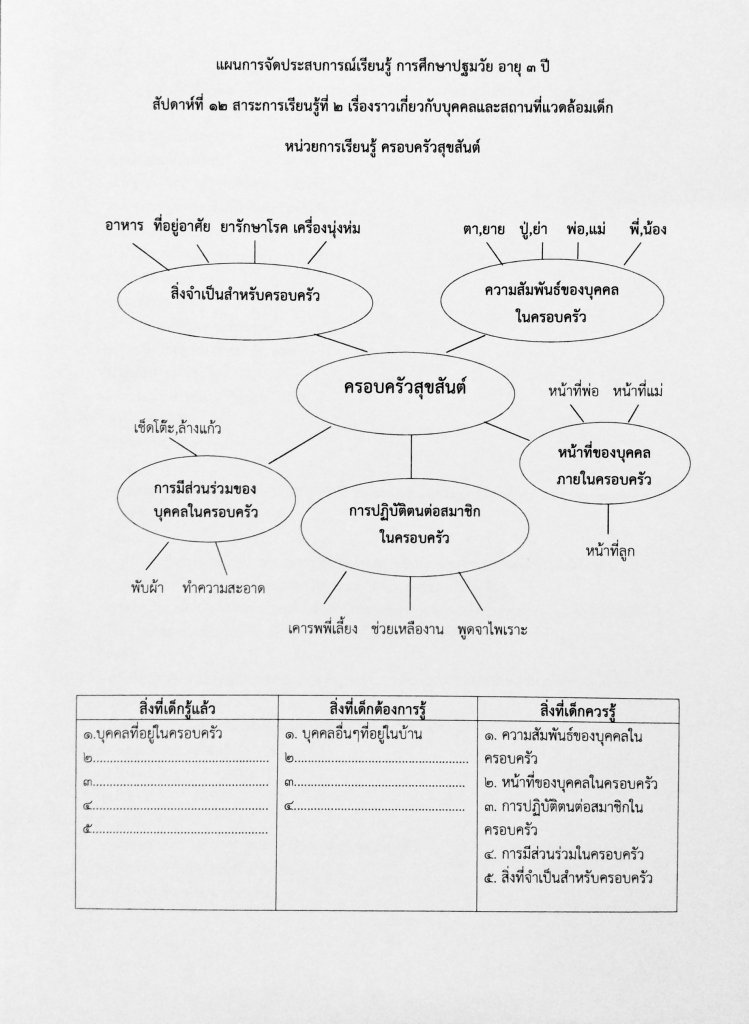 แผนการจัดประสบการณ์เรียนรู้ การศึกษาปฐมวัย อายุ ๓ ปี
สัปดาห์ที่ ๑๒ สาระการเรียนรู้ที่ ๒ เรื่องราวเกี่ยวกับบุคคลและสถานที่แวดล้อมเด็ก
หน่วยการเรียนรู้ ครอบครัวสุขสันต์
อาหาร ที่อยู่อาศัย ยารักษาโรค เครื่องนุ่งห่ม
สิ่งจำเป็นสำหรับครอบครัว
ตา,ยาย ปู่,ย่า พ่อ,แม่ พี่,น้อง
ความสัมพันธ์ของบุคคล
ในครอบครัว
ครอบครัวสุขสันต์
หน้าที่พ่อ หน้าที่แม่
หน้าที่ของบุคคล
ภายในครอบครัว
หน้าที่ลูก
เช็ดโต๊ะ,ล้างแก้ว
การมีส่วนร่วมของ
บุคคลในครอบครัว
พับผ้า ทำความสะอาด
การปฏิบัติตนต่อสมาชิก
ในครอบครัว
เคารพพี่เลี้ยง ช่วยเหลืองาน พูดจาไพเราะ
สิ่งที่เด็กรู้แล้ว
๑.บุคคลที่อยู่ในครอบครัว
๒.............................................
๓.............................................
๔.............................................
๕.............................................
สิ่งที่เด็กต้องการรู้
๑. บุคคลอื่นๆที่อยู่ในบ้าน
๒.............................................
๓............................................
๔............................................
สิ่งที่เด็กควรรู้
๑. ความสัมพันธ์ของบุคคลใน
ครอบครัว
๒. หน้าที่ของบุคคลในครอบครัว
๓. การปฏิบัติตนต่อสมาชิกใน
ครอบครัว
๔. การมีส่วนร่วมในครอบครัว
๕. สิ่งที่จำเป็นสำหรับครอบครัว